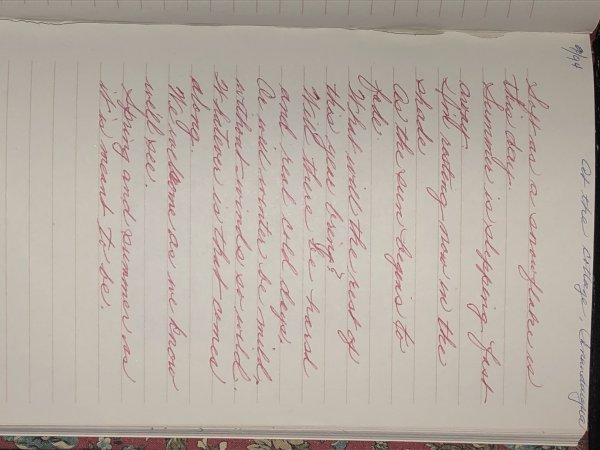 9/94 At the cottage, Canandaigua
Soft as a snowflake is
this day.
Summer is slipping fast
away.
Still sitting now in the
shade
As the sun begins to
fade.
What will the rest of
this year bring?
Will there be hard
and real cold days
Or will winter be mild,
without winds so wild.
Whatever is that comes
along,
We welcome as we know
we'll see.
Spring and summer as
it's meant to be.